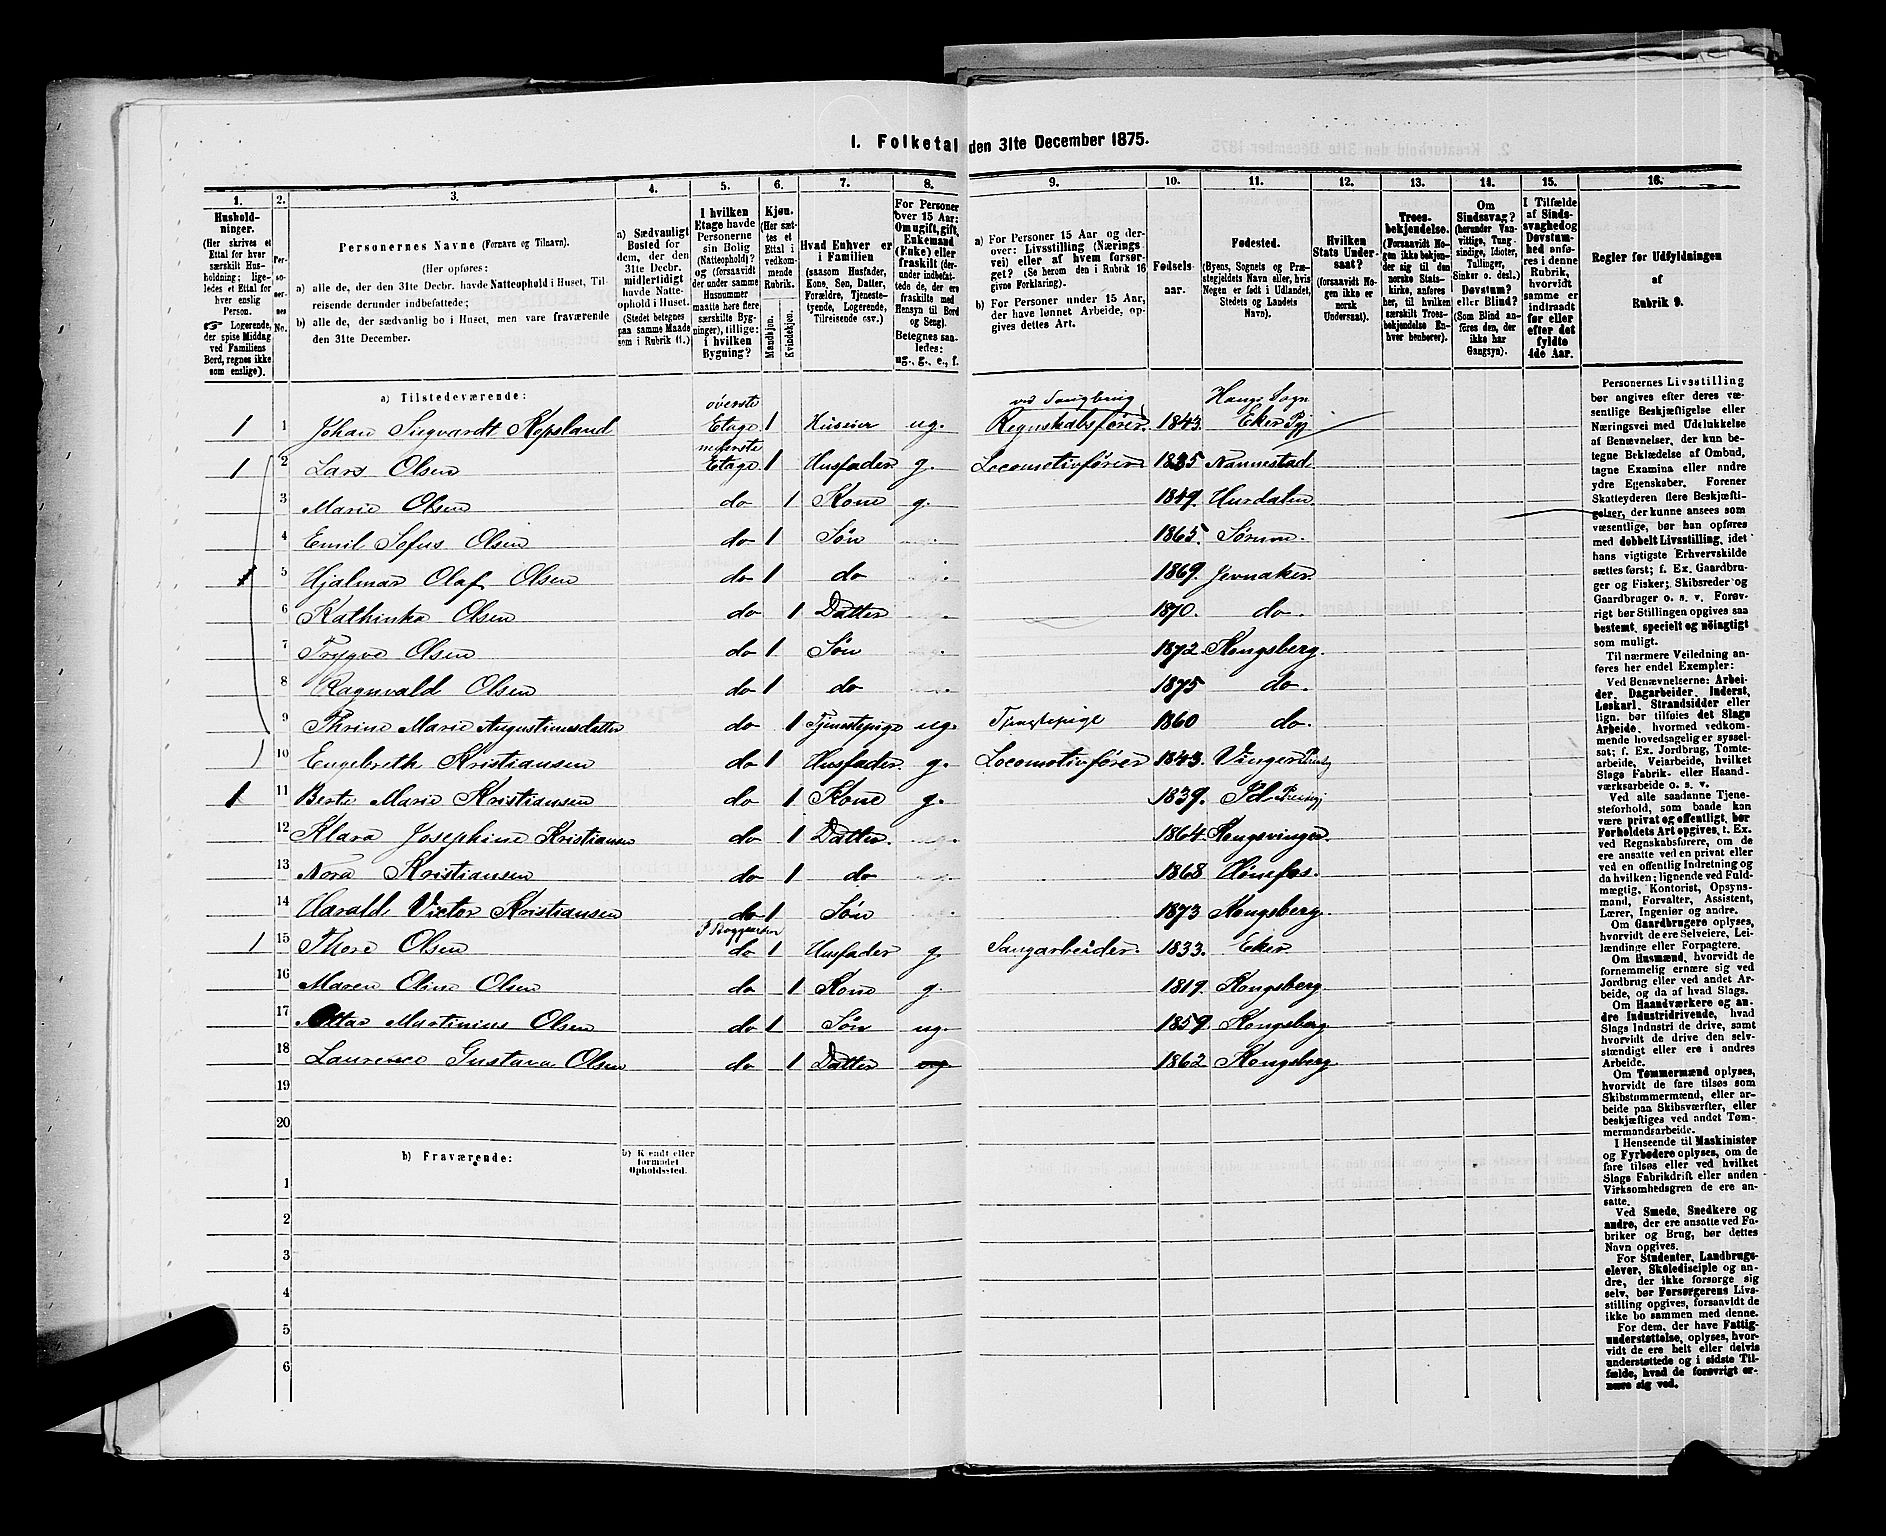 I. Folketal den 31te December 1875.
1. 2. 3. 4. 5. 6. 7. 8. 9. 10. 11. 12. 13. 14. 15. 16.
Husholdninger. (Her skrives et Ettal for hver særskilt Husholdning; ligeledes et Ettal for hver enslig Person. ☞ Logerende, der spise Middag ved Familiens Bord, regnes ikke som enslige).
Personernes No.
Personernes Navne (Fornavn og Tilnavn).
(Her opføres:
a) alle de, der den 31te Decbr. havde Natteophold i Huset, Tilreisende derunder indbefattede;
b) alle de, der sædvanlig bo i Huset, men vare fraværende den 31te December.
a) Sædvanligt Bosted for dem, der den 31te Decbr. midlertidigt havde Natteophold i Huset. (Stedet betegnes paa samme Maade som i Rubrik 11.)
I hvilken Etage havde Personerne sin Bolig (Natteophold)? og (forsaavidt der under samme Husnummer maatte høre flere særskilte Bygninger), tillige: i hvilken Bygning?
Kjøn. (Her sættes et Ettal i vedkommende Rubrik.
Mandkjøn. Kvindekjøn.
Hvad Enhver er i Familien (saasom Husfader, Kone, Søn, Datter, Forældre, Tjenestetyende, Logerende, Tilreisende osv.)
For Personer over 15 Aar: Om ugift, gift, Enkemand (Enke) eller fraskilt (derunder indbefattede de, der ere fraskilte med Hensyn til Bord og Seng). Betegnes saaledes: ug., g., e., f.
a) For Personer 15 Aar og derover: Livsstilling (Næringsvei) eller af hvem forsørget? (Se herom den i Rubrik 16 givne Forklaring).
b) For Personer under 15 Aar, der have lønnet Arbeide, opgives dettes Art.
Fødselsaar.
Fødested. (Byens, Sognets og Præstegjeldets Navn eller, hvis Nogen er født i Udlandet, Stedets og Landets Navn).
Hvilken Stats Undersaat? (forsaavidt Nogen ikke er norsk Undersaat).
Troesbekjendelse. (Forsaavidt Nogen ikke bekjender sig til den norske Statskirke, anføres her, til hvilken særskilt Troesbekjendelse Enhver henhører).
Om Sindssvag? (herunder Vanvittige, Tungsindige, Idioter, Tullinger, Sinker o. desl.) Døvstum? eller Blind? (Som Blind anføres den, der ikke har Gangsyn).
I Tilfælde af Sindssvaghed og Døvstumhed anføres i denne Rubrik, hvorvidt samme er indtraadt før eller efter det fyldte 4de Aar.
Regler for Udfyldningen af Rubrik 9.
a) Tilstedeværende:
1 1 Johan Sigvardt Kopsland øverste Etage 1 Huseier ug. Regnskabsfører 1843. Houg Sogn Eker Pgj
1 2 Lars Olsen nederste Etage 1 Husfader g. Locomotivfører 1835 Nannestad
3 Marie Olsen do 1 Kone g. 1849. Hurdalen
4 Emil Sofus Olsen do 1 Søn 1865. Sørum.
5 Hjalmar Olaf Olsen do 1 do 1869. Jevnaker.
6 Kathinka Olsen do 1 Datter 1870. do.
7 Trygve Olsen do 1 Søn 1872 Kongsberg.
8 Ragnvald Olsen do 1 do 1875 do.
9 Thrine Marie Augustinusdatter do 1 Tjenstepige ug. Tjenstepige 1860 do.
10 Engebreth Kristiansen do 1 Husfader g. Locomotivfører 1843. Vinger
1 11 Berte Marie Kristiansen do 1 Kone g. 1839. Id
12 Klara Josephine Kristiansen do 1 Datter. 1864. Kongsvinger
13 Nora Kristiansen do 1 do 1868 Hønefos.
14 Harald Victor Kristiansen do 1 Søn 1873 Kongsberg.
1 15 Thore Olsen do 1 Husfader g. Saugarbeider. 1833. Eker.
16 Maren Oline Olsen do 1 Kone g. 1819. Kongsberg.
17 Ottar Martinius Olsen do 1 Søn ug. 1859. Kongsberg
18 Laurence Gustava Olsen do 1 Datter ug 1862 Kongsberg
19
20
b) Fraværende:
b) Kjendt eller formodet Opholdssted.
1
2
3
4
5
6
Personernes Livsstilling bør angives efter deres væsentlige Beskjæftigelse eller Næringsvei med Udelukkelse af Benævnelser, der kun betegne Beklædelse af Ombud, tagne Examina eller andre ydre Egenskaber. Forener Skatteyderen flere Beskjæftigelser, der kunne ansees som væsentlige, bør han opføres med dobbelt Livsstilling, idet hans vigtigste Erhvervskilde sættes først; f. Ex. Gaardbruger og Fisker; Skibsreder og Gaardbruger o. s. v. Forøvrigt bør Stillingen opgives saa bestemt, specielt og nøiagtigt som muligt.
Til nærmere Veiledning anføres her endel Exempler:
Ved Benævnelserne: Arbeider, Dagarbeider, Inderst, Løskarl, Strandsidder eller lign. bør tilføies det Slags Arbeide, hvormed vedkommende hovedsagelig er sysselsat; f. Ex. Jordbrug, Tomtearbeide, Veiarbeide, hvilket Slags Fabrik- eller Haandværksarbeide o. s. v.
Ved alle saadanne Tjenesteforhold, som baade kan være privat og offentligt, bør Forholdets Art opgives, t. Ex. ved Regnskabsførere, om de ere ansatte ved en privat eller ved en offentlig Indretning og da hvilken; lignende ved Fuldmægtig, Kontorist, Opsynsmand, Forvalter, Assistent, Lærer, Ingeniør og andre.
Om Gaardbrugere oplyses, hvorvidt de ere Selveiere, Leilændinge eller Forpagtere.
Om Husmænd, hvorvidt de fornemmelig ernære sig ved Jordbrug eller ved andet Arbeide, og da af hvad Slags.
Om Haandværkere og andre Industridrivende, hvad Slags Industri de drive, samt hvorvidt de drive den selvstændigt eller ere i andres Arbeide.
Om Tømmermænd oplyses, hvorvidt de fare tilsøs som Skibstømmermænd, eller arbeide paa Skibsværfter, eller beskjæftiges ved andet Tømmermandsarbeide.
I Henseende til Maskinister og Fyrbødere oplyses, om de fare tilsøs eller ved hvilket Slags Fabrikdrift eller anden Virksomhedsgren de ere ansatte.
Ved Smede, Snedkere og andre, der ere ansatte ved Fabriker og Brug, bør dettes Navn opgives.
For Studenter, Landbrugselever, Skoledisciple og andre, der ikke forsørge sig selv, bør Forsørgerens Livsstilling opgives, forsaavidt de ikke bo sammen med denne.
For dem, der have Fattigunderstøttelse, oplyses, hvorvidt de ere helt eller delvis understøttede og i sidste Tilfælde, hvad de forøvrigt ernære sig ved.